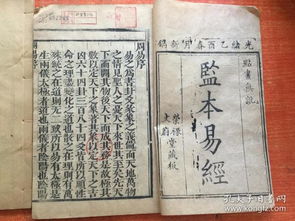 光緒乙酉春月新鐫
點畫無訛
監本易經
堂藏板
周易序
易之為書卦爻彖象之義備而天地萬物
之情見聖人之憂天下來世其至矣先天
下而開其物後天下而成其務是故極其
數以定天下之象著其象以定天下之吉
凶六十四卦三百八十四爻皆所以順性
命之理盡變化之道也散之在理則有萬
殊統之在道則无二致所以易有太極是
生兩儀太極者道也兩儀者陰陽也陰陽